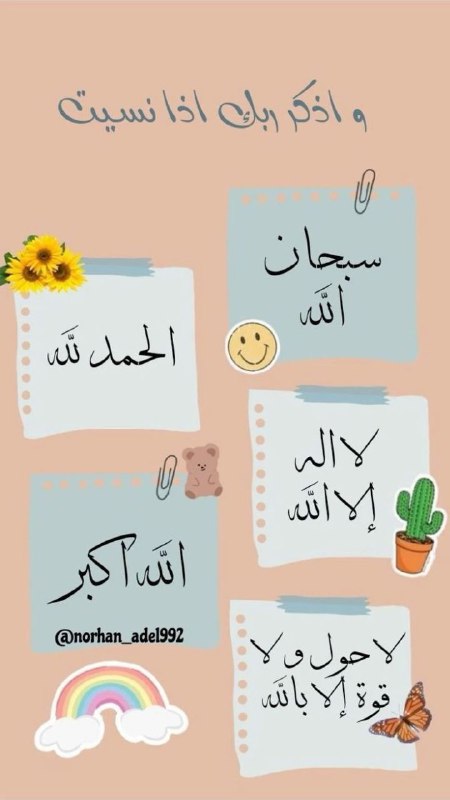 و اذكر ربك اذا نسيت
سبحان
الله
الحمد لله
لا اله
إلا الله
الله أكبر
@norhan_adel992
لا حول و لا
قوة إلا بالله